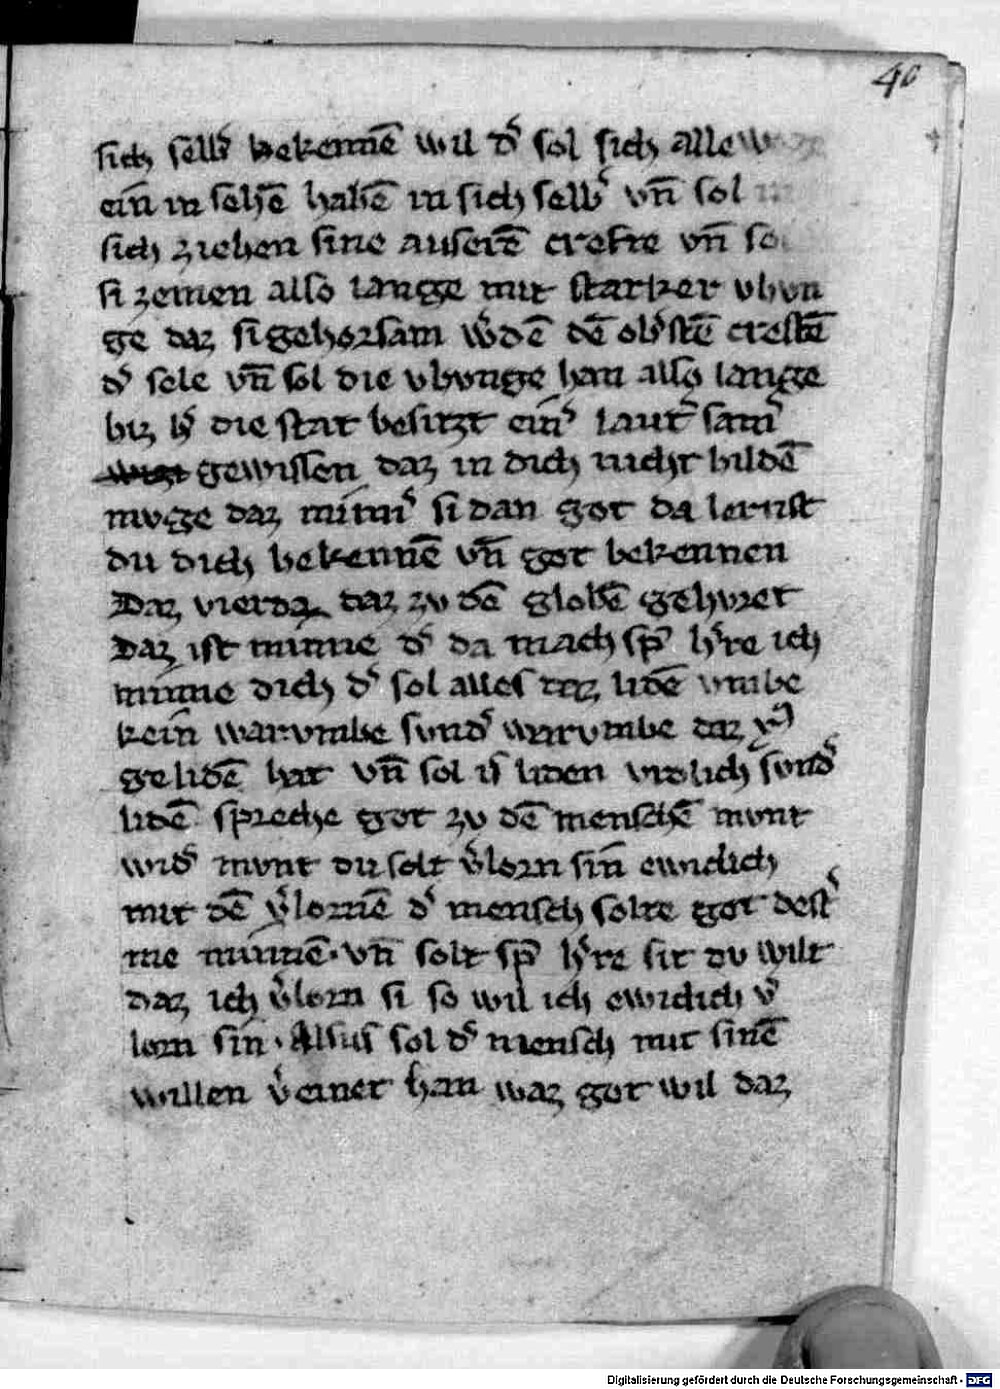 40
sich selbͬ bekennē wil dͬ sol sich alle
ein in sehē habē in sich selbͬ vn̄ sol
sich ziehen sine auserē crefte vn̄
si zemen also lange mit starker vbvn
ge daz si gehorsam wͬdē dē obͬstē creftē
dͬ sele vn̄ sol die vbvnge han also lange
biz hͬ die stat besitzt einͬ lautͬ samͬ
gewissen daz in dich nicht bildē
mvge daz minnͬ si dan got da lernst
du dich bekennē vn̄ got bekennen
Daz vierda daz zv dē globē gehvret
Daz ist minne dͬ da mach sp̄ hͬre ich
minne dich dͬ sol alles daz lidē vmbe
kein warvmbe svndͬ warvmbe daz
gelidē hat vn̄ sol liden vrolich svndͬ
lidē spreche got zv dē menschē mvnt
widͬ mvnt du solt vͬlorn sin ewiclich
mit dē vͬlornē dͬ mensch solte got destͬ
me minnē · vn̄ solt sp̄ hͬre sit du wilt
daz ich vͬlorn si so wil ich ewiclich vͬ
lorn sin · Alsus sol dͬ mensch mit sinē
willen vͬeinet han waz got wil daz
Digitalisierung gefördert durch die Deutsche Forschungsgemeinschaft - DFG